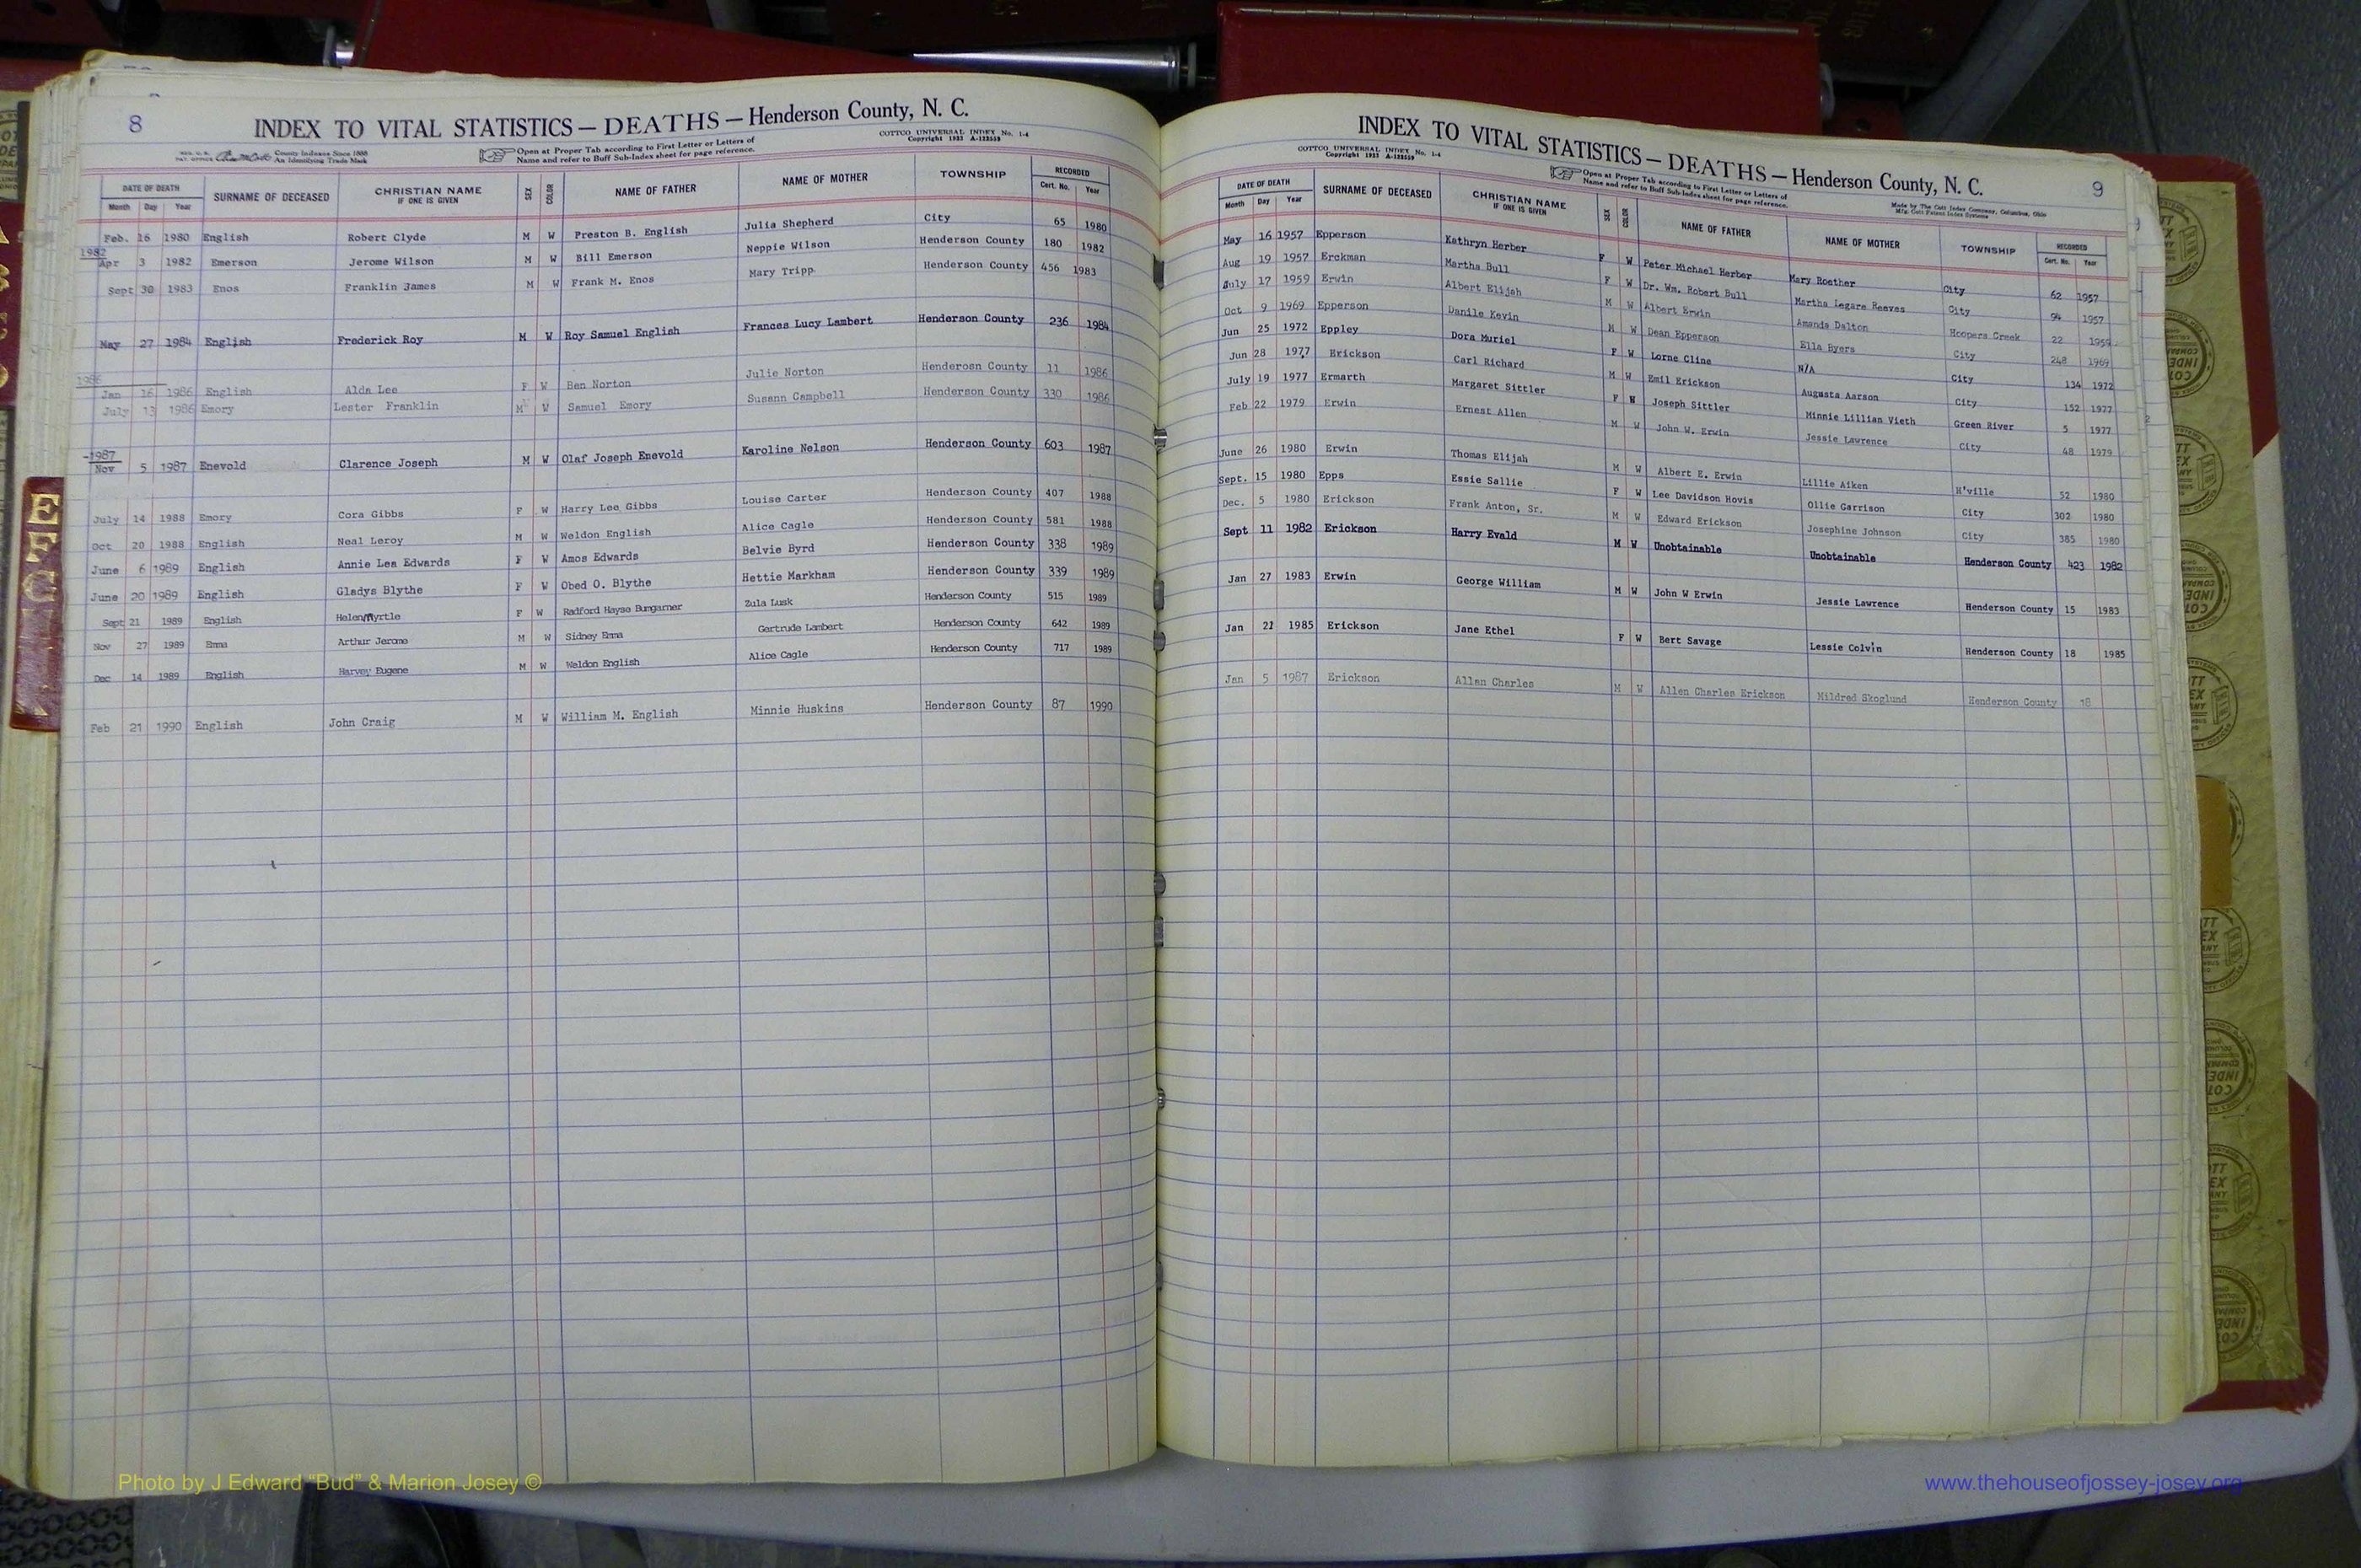 8
INDEX TO VITAL STATISTICS — DEATHS — Henderson County, N. C.
COTTCO UNIVERSAL INDEX No. 1-4
Copyright 1933 A-122559
County Indexes Since 1888
An Identifying Trade Mark
Open at Proper Tab according to First Letter or Letters of
Name and refer to Buff Sub-Index sheet for page reference.
DATE OF DEATH SURNAME OF DECEASED CHRISTIAN NAME IF ONE IS GIVEN SEX COLOR NAME OF FATHER NAME OF MOTHER TOWNSHIP RECORDED
Month Day Year Cert. No. Year
Feb. 16 1980 English Robert Clyde M W Preston B. English Julia Shepherd City 65 1980
1982
Apr 3 1982 Emerson Jerome Wilson M W Bill Emerson Neppie Wilson Henderson County 180 1982
Sept 30 1983 Enos Franklin James M W Frank M. Enos Mary Tripp Henderson County 456 1983
May 27 1984 English Frederick Roy M W Roy Samuel English Frances Lucy Lambert Henderson County 236 1984
1986
Jan 16 1986 English Alda Lee F W Ben Norton Julie Norton Henderosn County 11 1986
July 13 1986 Emory Lester Franklin M W Samuel Emory Susann Campbell Henderson County 330 1986
-1987
Nov 5 1987 Enevold Clarence Joseph M W Olaf Joseph Enevold Karoline Nelson Henderson County 603 1987
July 14 1988 Emory Cora Gibbs F W Harry Lee Gibbs Louise Carter Henderson County 407 1988
Oct 20 1988 English Neal Leroy M W Weldon English Alice Cagle Henderson County 581 1988
June 6 1989 English Annie Lea Edwards F W Amos Edwards Belvie Byrd Henderson County 338 1989
June 20 1989 English Gladys Blythe F W Obed O. Blythe Hettie Markham Henderson County 339 1989
Sept 21 1989 English Helen Myrtle F W Radford Hayse Bumgarner Zula Lusk Henderson County 515 1989
Nov 27 1989 Emma Arthur Jerome M W Sidney Emma Gertrude Lambert Henderson County 642 1989
Dec 14 1989 English Harvey Eugene M W Weldon English Alice Cagle Henderson County 717 1989
Feb 21 1990 English John Craig M W William M. English Minnie Huskins Henderson County 87 1990
INDEX TO VITAL STATISTICS — DEATHS — Henderson County, N. C.
9
COTTCO UNIVERSAL INDEX No. 1-4
Copyright 1933 A-122559
Open at Proper Tab according to First Letter or Letters of
Name and refer to Buff Sub-Index sheet for page reference.
Made by The Cott Index Company, Columbus, Ohio
Mfg. Cott Patent Index Systems
DATE OF DEATH SURNAME OF DECEASED CHRISTIAN NAME IF ONE IS GIVEN SEX COLOR NAME OF FATHER NAME OF MOTHER TOWNSHIP RECORDED
Month Day Year Cert. No. Year
May 16 1957 Epperson Kathryn Herber F W Peter Michael Herber Mary Roether City 62 1957
Aug 19 1957 Erckman Martha Bull F W Dr. Wm. Robert Bull Martha Legare Reeves City 94 1957
July 17 1959 Erwin Albert Elijah M W Albert Erwin Amanda Dalton Hoopers Creek 22 1959
Oct 9 1969 Epperson Danile Kevin M W Dean Epperson Ella Byers City 248 1969
Jun 25 1972 Eppley Dora Muriel F W Lorne Cline N/A City 134 1972
Jun 28 1977 Erickson Carl Richard M W Emil Erickson Augusta Aarson City 152 1977
July 19 1977 Ermarth Margaret Sittler F W Joseph Sittler Minnie Lillian Vieth Green River 5 1977
Feb 22 1979 Erwin Ernest Allen M W John W. Erwin Jessie Lawrence City 48 1979
June 26 1980 Erwin Thomas Elijah M W Albert E. Erwin Lillie Aiken H'ville 52 1980
Sept. 15 1980 Epps Essie Sallie F W Lee Davidson Hovis Ollie Garrison City 302 1980
Dec. 5 1980 Erickson Frank Anton, Sr. M W Edward Erickson Josephine Johnson City 385 1980
Sept 11 1982 Erickson Harry Evald M W Unobtainable Unobtainable Henderson County 423 1982
Jan 27 1983 Erwin George William M W John W Erwin Jessie Lawrence Henderson County 15 1983
Jan 21 1985 Erickson Jane Ethel F W Bert Savage Lessie Colvin Henderson County 18 1985
Jan 5 1987 Erickson Allan Charles M W Allen Charles Erickson Mildred Skoglund Henderson County 18
E
F
G
Photo by J Edward “Bud” & Marion Josey ©
www.thehouseofjossey-josey.org